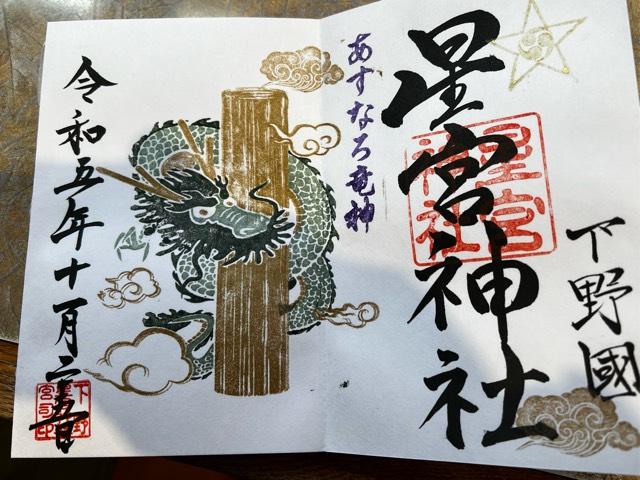 下野國
星宮神社
星宮神社
あすなろ竜神
令和五年十月二十五日